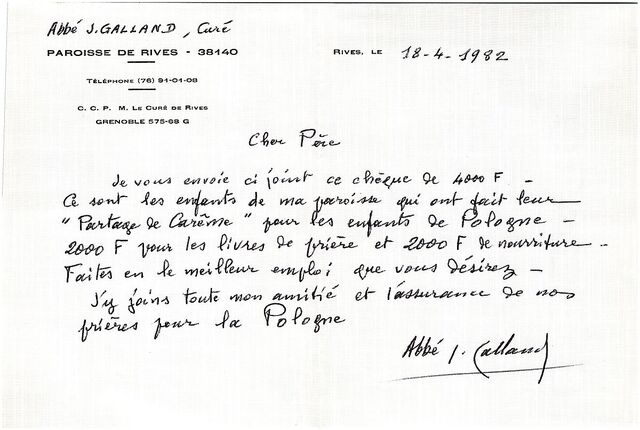 Abbé J. GALLAND, Curé
PAROISSE DE RIVES - 38140
RIVES, LE 18-4-1982
TÉLÉPHONE (76) 91-01-08
C. C. P. M. LE CURÉ DE RIVES
GRENOBLE 575-68 G
Cher Père
Je vous envoie ci joint ce chèque de 4000 F -
Ce sont les enfants de ma paroisse qui ont fait leur
"Partage de Carême" pour les enfants de Pologne -
2000 F pour les livres de prière et 2000 F de nourriture -
Faites en le meilleur emploi que vous désirez -
J'y joins toute mon amitié et l'assurance de nos
prières pour la Pologne
Abbé J. Galland